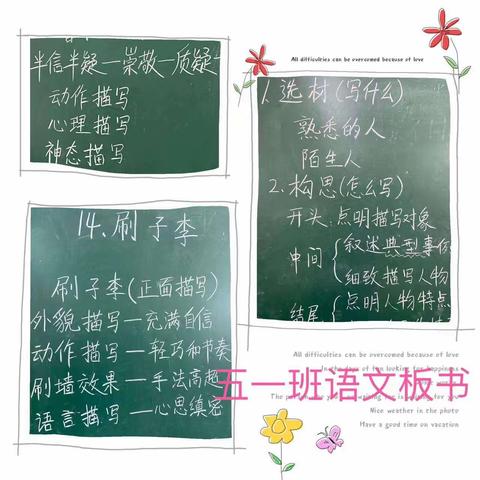 半信半疑—崇敬—质疑
动作描写
心理描写
神态描写
All difficulties can be overcomed because of love
1.选材(写什么)
熟悉的人
陌生人
2.构思(怎么写)
开头:点明描写对象
中间{叙述典型事
细致描写人物
结尾{点明人物特点
14.刷子李
刷子李(正面描写)
外貌描写—充满自信
动作描写—轻巧和节奏
刷墙效果—手法高超
语言描写—心思缜密
五一班语文板书
All difficulties can be overcomed because of love
In the days of fun looking for happiness
Nice weather in the photo
Have a good time on vacation